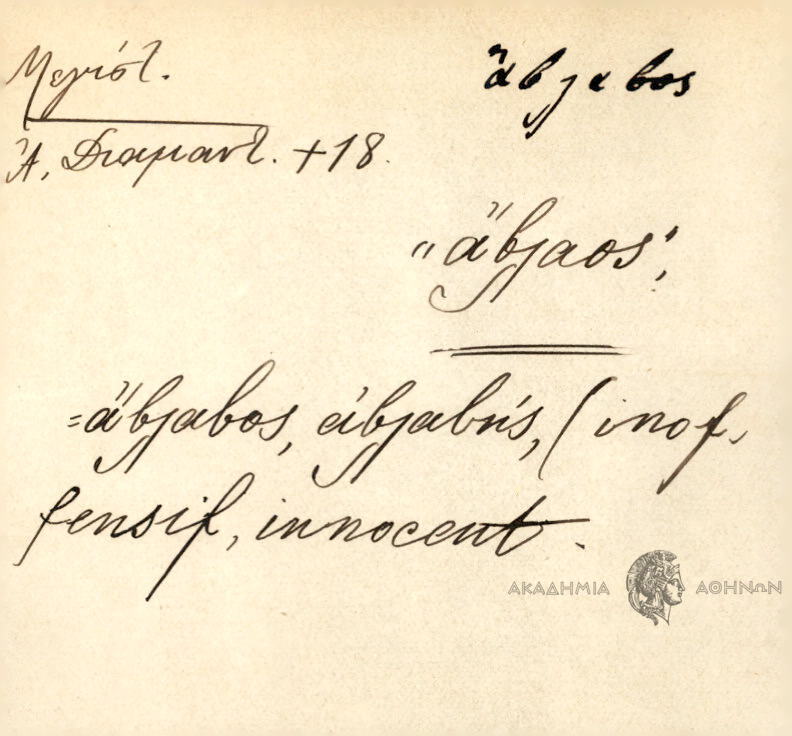 Μεγίστ.
Ἀ. Διαμαντ. +18.
ἄβλαβος
"ἄβλαος",
=ἄβλαβος, ἀβλαβής, (inof-
fensif, innocent.
ΑΚΑΔΗΜΙΑ ΑΘΗΝΩΝ